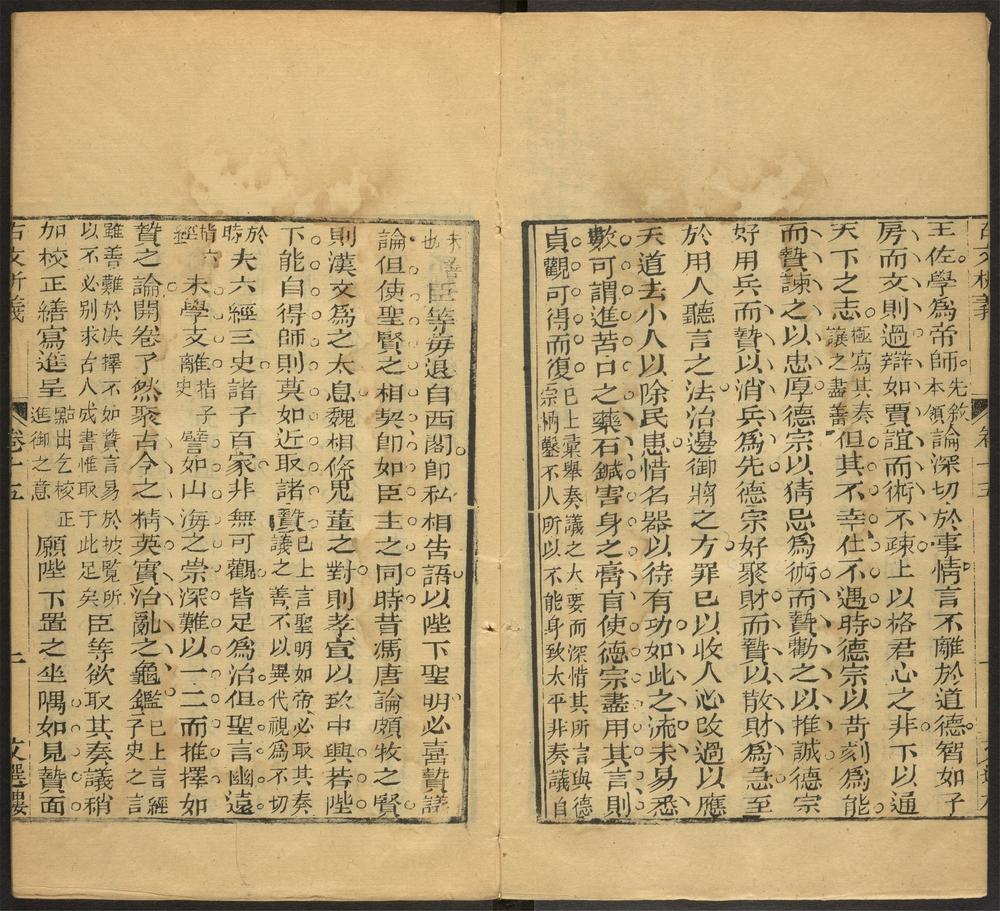 王佐學爲帝師先叙本領論深切於事情言不離於道德智如子
房而文則過辯如賈誼而術不疎上以格君心之非下以通
天下之志極寫其奏議之盡善但其不幸仕不遇時德宗以苛刻爲能
而贄諫之以忠厚德宗以猜忌爲術而贄勸之以推誠德宗
好用兵而贄以消兵爲先德宗好聚財而贄以散財爲急至
於用人聽言之法治邊御將之方罪已以收人心改過以應
天道去小人以除民患惜名器以待有功如此之流未易悉
數可謂進苦口之藥石鍼害身之膏肓使德宗盡用其言則
貞觀可得而復已上彚舉奏議之大要而深惜其所言與德宗柄鑿不入所以不能身致太平非奏議自
未善也臣等每退自西閣卽私相告語以陛下聖明必喜贄議
論但使聖賢之相契卽如臣主之同時昔馮唐論頗牧之賢
則漢文爲之太息魏相條鼂董之對則孝宣以致中興若陛
下能自得師則莫如近取諸贄已上言聖明如帝必取其奏議之善不以異代視爲不切
於時夫六經三史諸子百家非無可觀皆足爲治但聖言幽遠
指六經末學支離指子史譬如山海之崇深難以一二而推擇如
贄之論開卷了然聚古今之精英實治亂之龜鑑已上言經子史之言
雖善難於決擇不如贄言易於披覽所以不必别求古人成書惟取于此足矣臣等欲取其奏議稍
加校正繕寫進呈點出乞校正進御之意願陛下置之坐隅如見贄面
古文析義 卷十五 文選樓